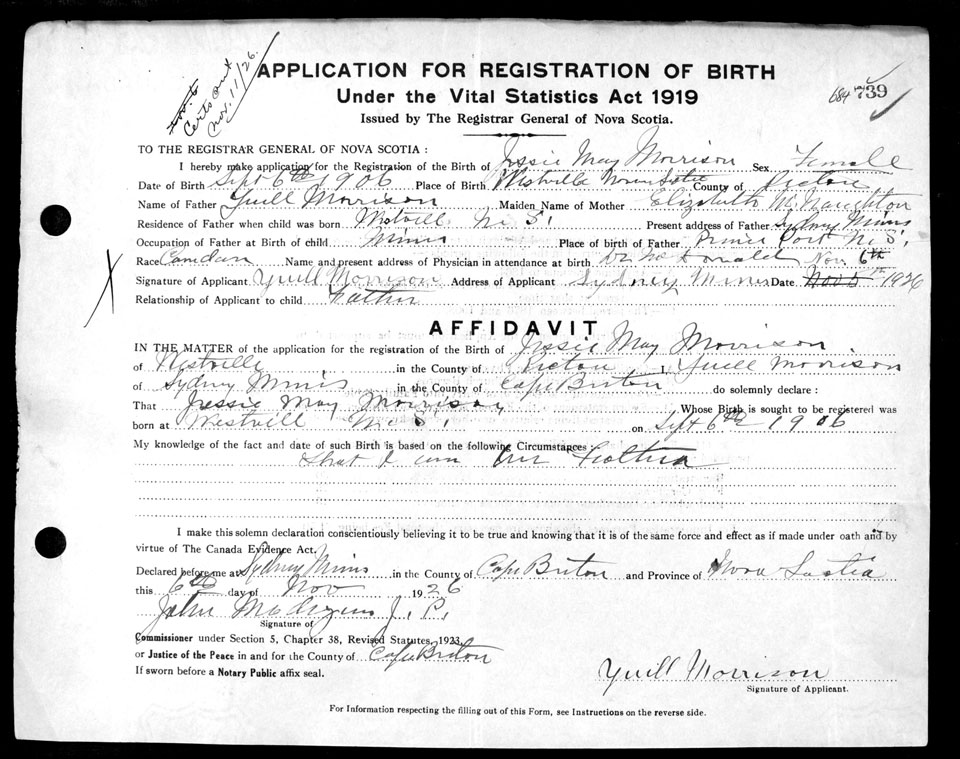 Nov. 6
Certs out
Nov. 11/26.
APPLICATION FOR REGISTRATION OF BIRTH
Under the Vital Statistics Act 1919
Issued by The Registrar General of Nova Scotia.
684 739
TO THE REGISTRAR GENERAL OF NOVA SCOTIA :
I hereby make application for the Registration of the Birth of Jessie May Morrison Sex Female
Date of Birth Sept 6th 1906 Place of Birth Westville Nova Scotia County of Pictou
Name of Father Yuill Morrison Maiden Name of Mother Elizabeth McNaughton
Residence of Father when child was born Westvill N.S. Present address of Father Sydney Mines
Occupation of Father at Birth of child Miner Place of birth of Father Prince Port N.S.
Race Canadian Name and present address of Physician in attendance at birth Dr McDonald Nov 6th
Signature of Applicant Yuill Morrison Address of Applicant Sydney Mines Date Nov 5th 1926
Relationship of Applicant to child Father
X
AFFIDAVIT
IN THE MATTER of the application for the registration of the Birth of Jessie May Morrison
of Westville in the County of Pictou I, Yuill Morrison
of Sydney Mines in the County of Cape Briton do solemnly declare :
That Jessie May Morrison Whose Birth is sought to be registered was
born at Westvill N.S. on Sept 6th 1906
My knowledge of the fact and date of such Birth is based on the following Circumstances
that I am her Father
I make this solemn declaration conscientiously believing it to be true and knowing that it is of the same force and effect as if made under oath and by
virtue of The Canada Evidence Act.
Declared before me at Sydney Mines in the County of Cape Briton and Province of Nova Scotia
this 6th day of Nov 1926
John J. P.
Signature of
Commissioner under Section 5, Chapter 38, Revised Statutes, 1923,
or Justice of the Peace in and for the County of Cape Briton
If sworn before a Notary Public affix seal.
Yuill Morrison
Signature of Applicant.
For Information respecting the filling out of this Form, see Instructions on the reverse side.